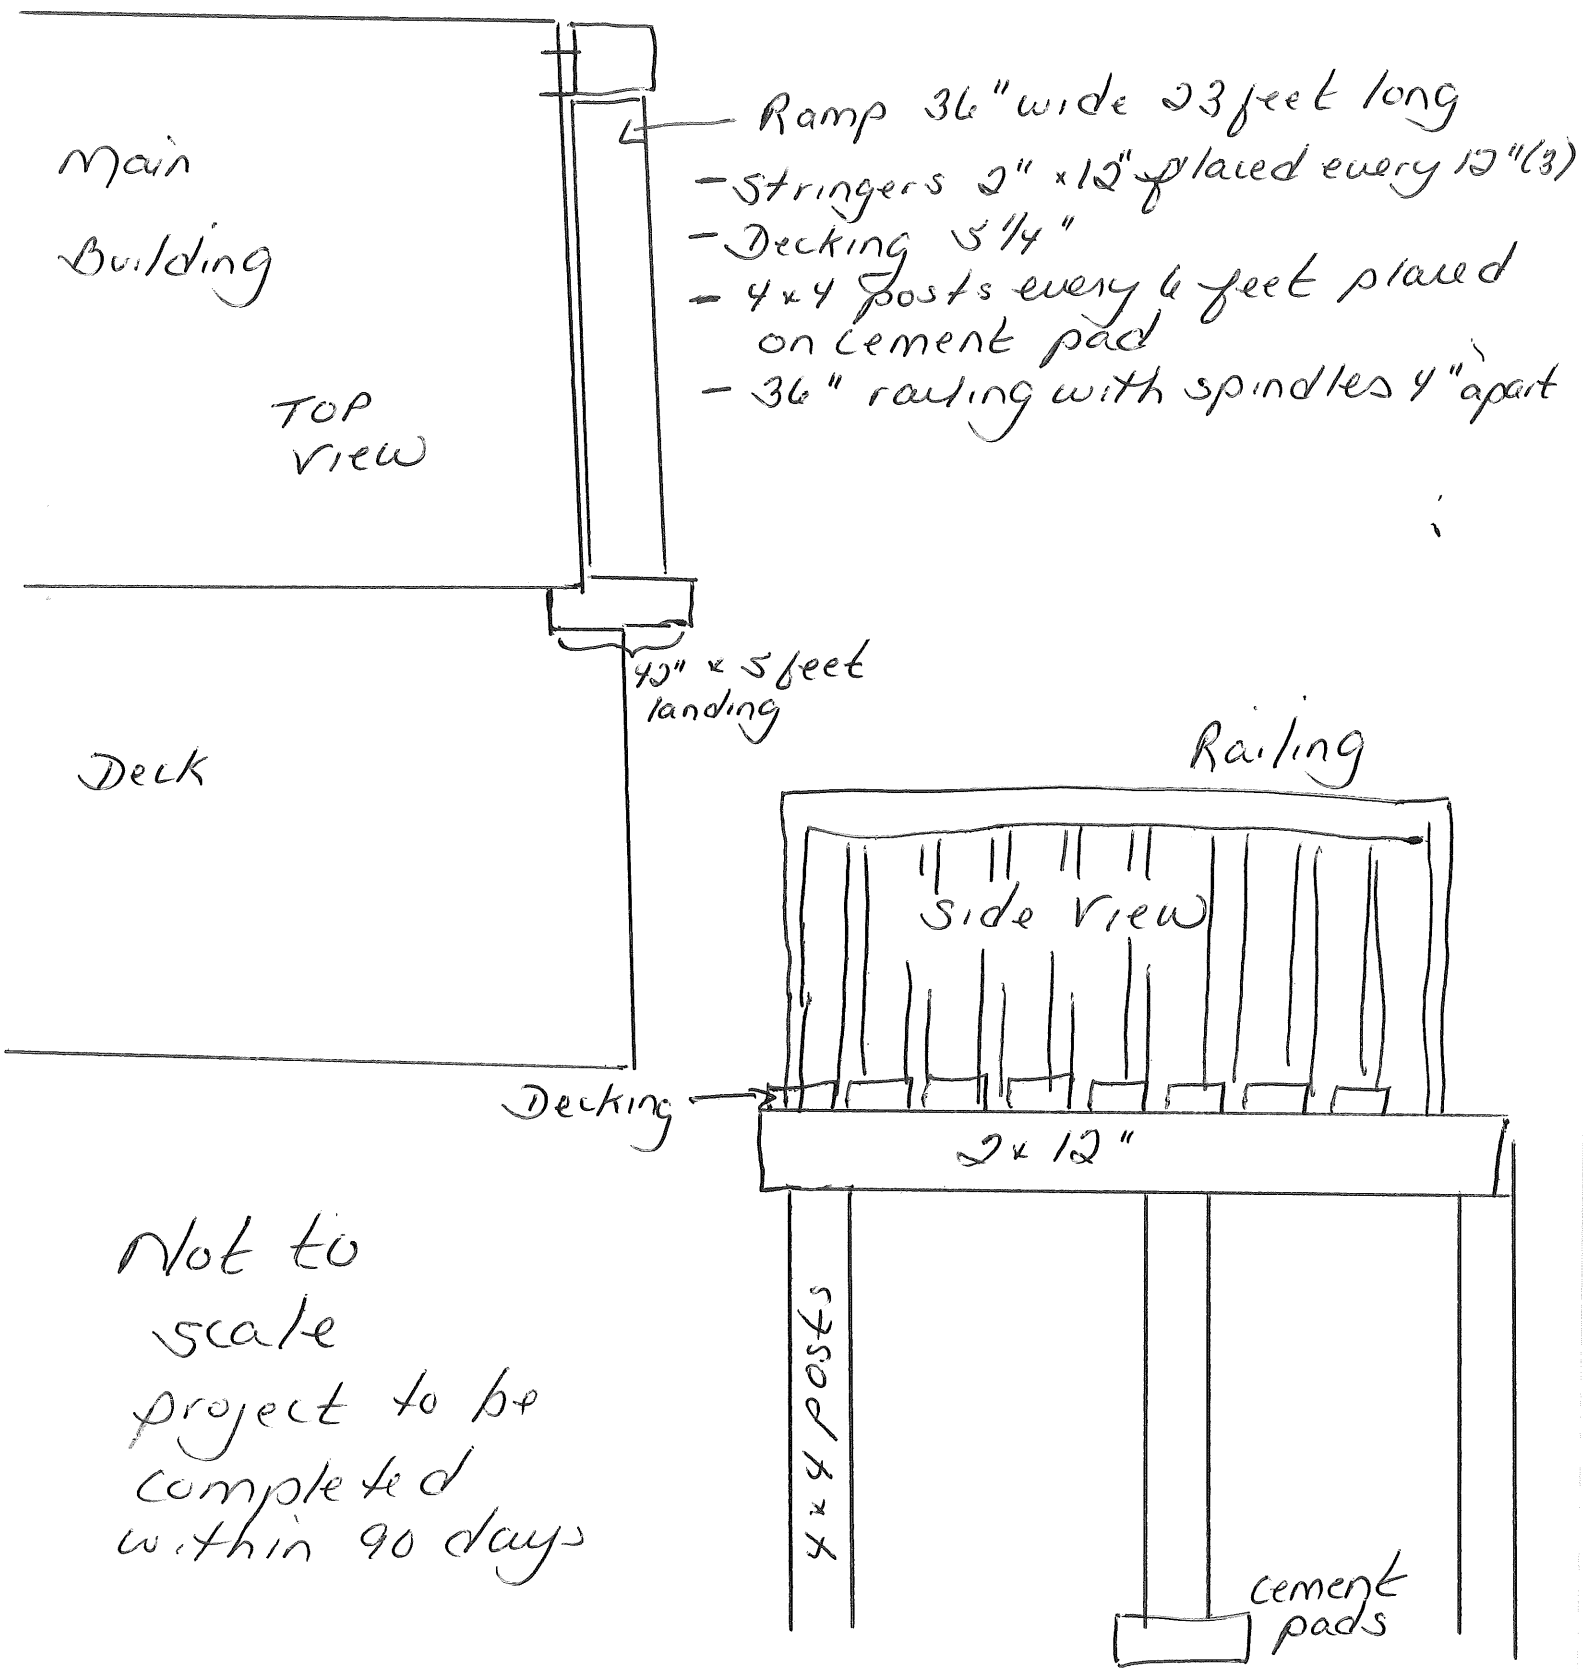 Ramp 36" wide 23 feet long
- Stringers 2" x 12" placed every 12" (3)
- Decking 5 1/4"
- 4x4 posts every 6 feet placed
on cement pad
- 36" railing with spindles 4" apart
Main
Building
TOP
View
42" x 5 feet
landing
Deck
Railing
Side View
Decking
2 x 12"
4 x 4 posts
cement
pads
Not to
scale
project to be
completed
within 90 days